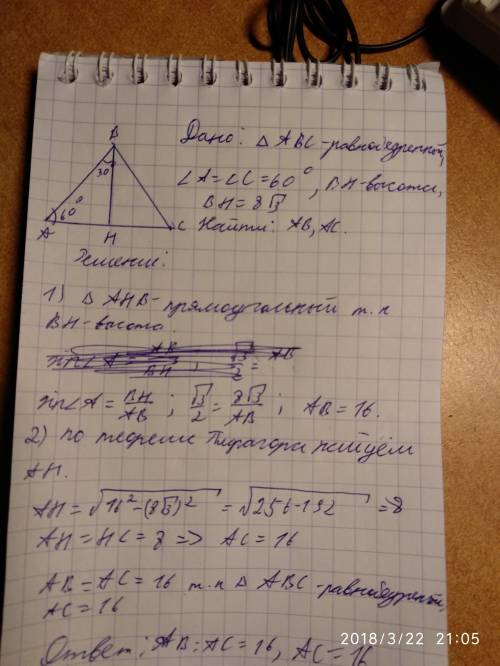 Дано: △ ABC - равнобедренный,
∠A=∠C=60°, BH-высота,
BH=8√3
Найти: AB, AC.
B
30°
60°
A
H
C
Решение:
1) △ AHB - прямоугольный т.к
BH-высота.
sin∠A = BH/AB ; √3/2 = 8√3/AB ; AB=16.
2) по теореме Пифагора найдём
AH.
AH = √16²-(8√3)² = √256-192 = 8
AH = HC = 8 => AC = 16
AB = AC = 16 т.к △ ABC-равнобедренный,
AC = 16
Ответ: AB=AC=16, AC=16
2018/3/22 21:05